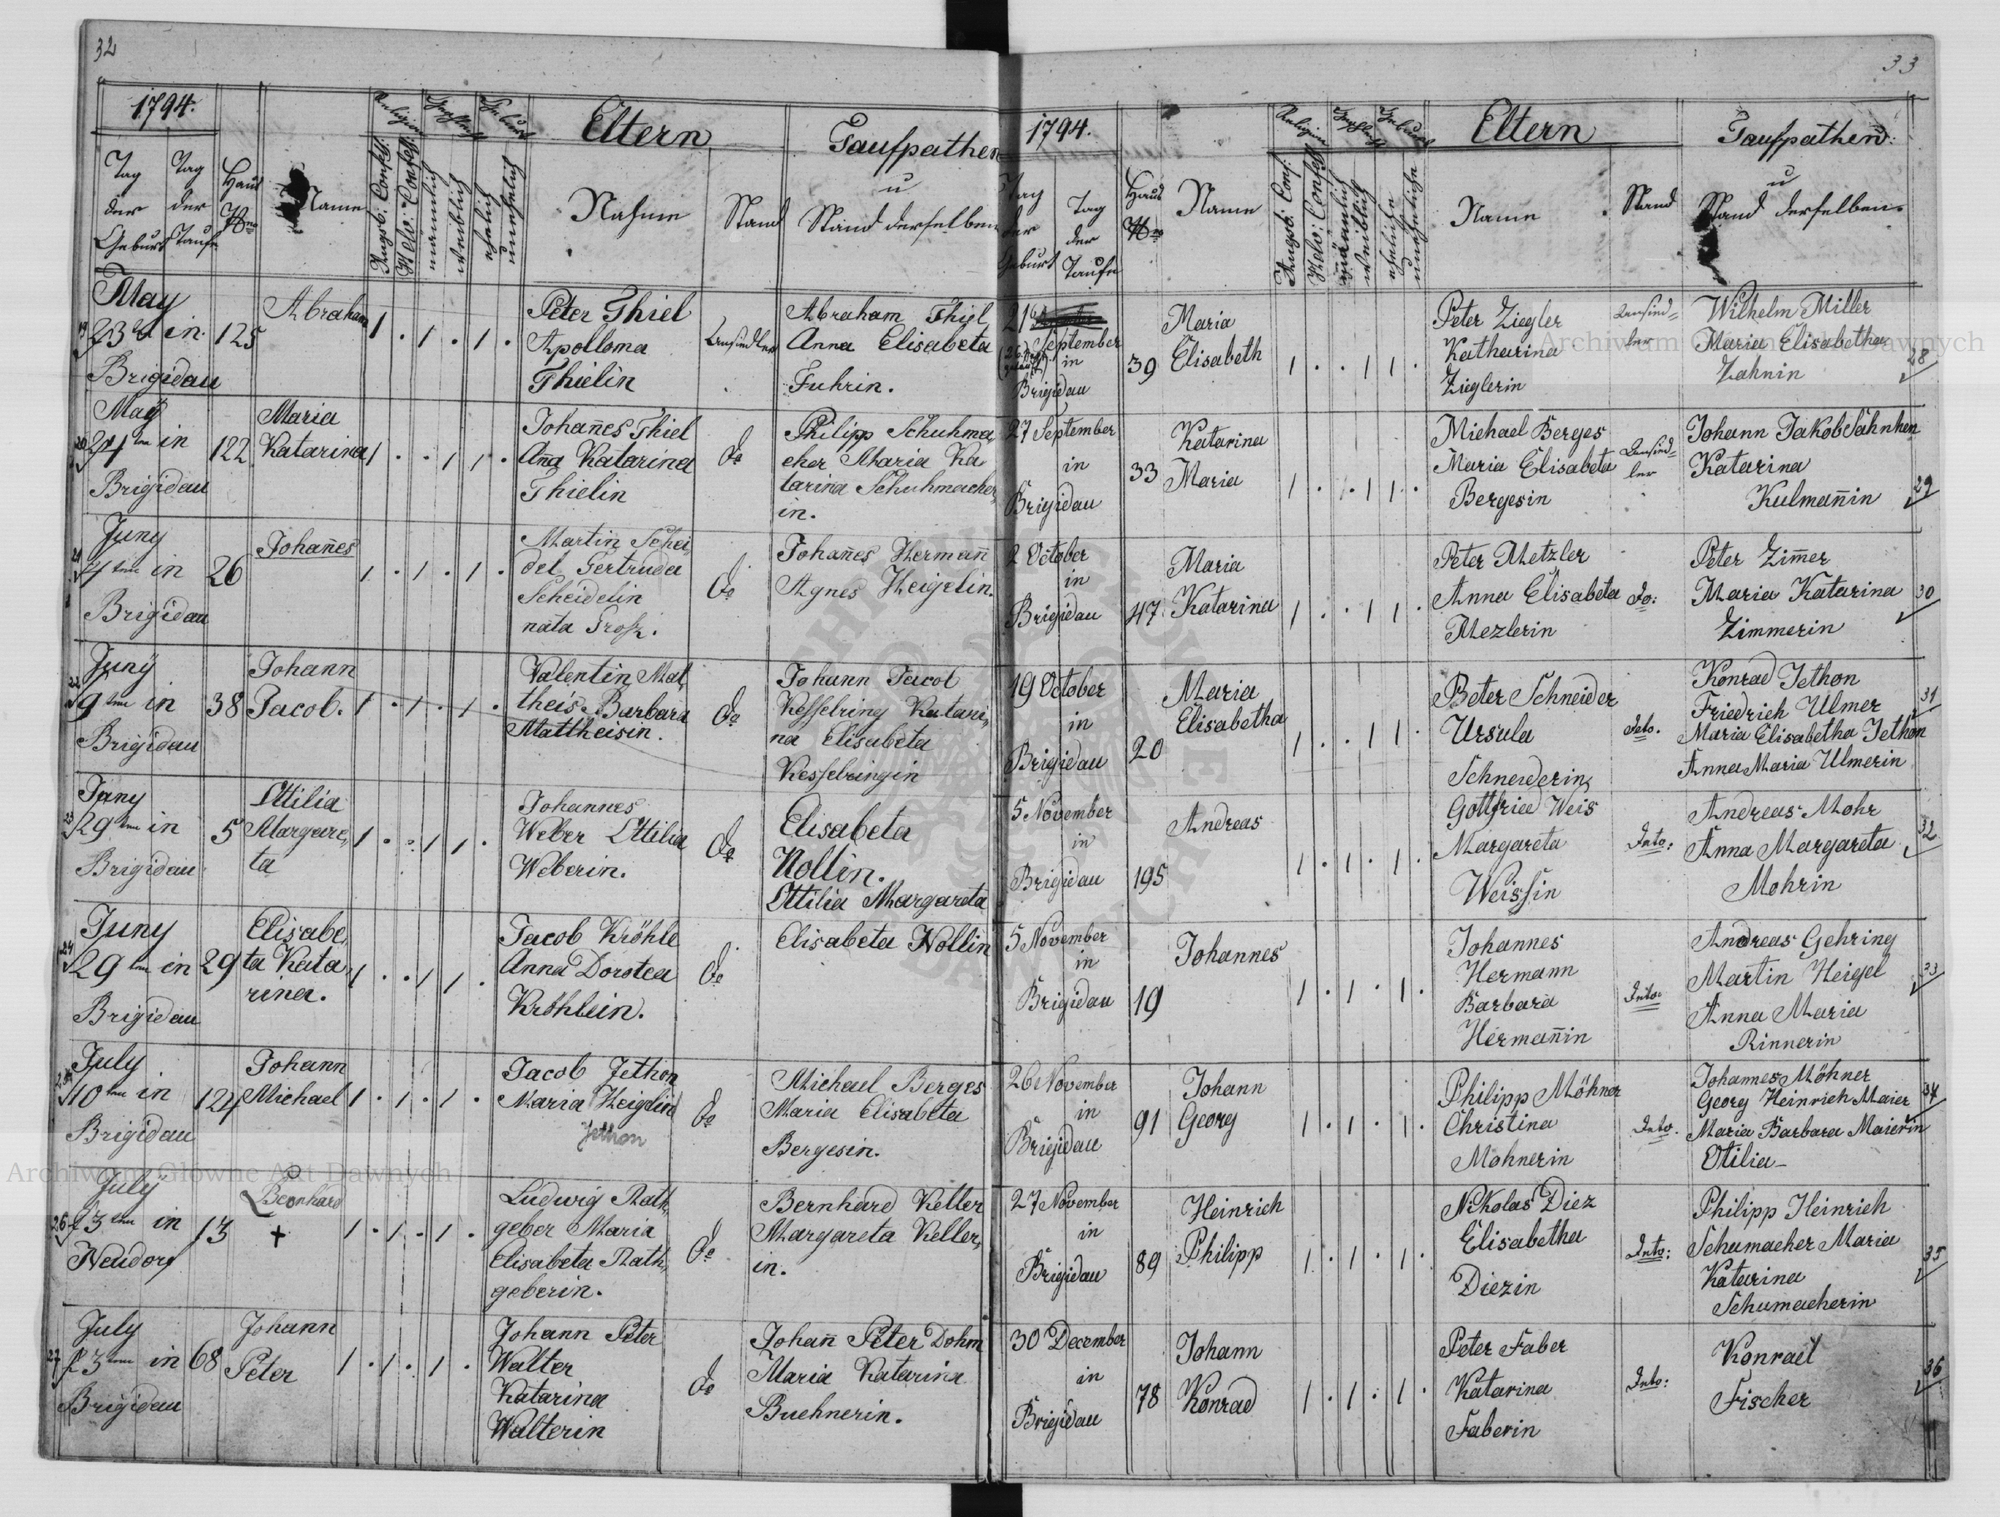 32
1794.
Religion
Geschlecht
Geburt
Eltern
Taufpathen
u
Stand derselben
Tag der Geburt
Tag der Taufe
Haus Nro
Name
Augsb: Confess.
Helv: Confess.
männlich
weiblich
ehelich
unehelich
Nahme
Stand
May
19 23 in 125 Abraham 1 . 1 . 1 . Peter Thiel Ansiedler Abraham Thiel
Brigidau Apollonia Anna Elisabeta
Thielin Fuhrin.
May Maria Johañes Thiel Philipp Schuhma
20 24ten in 122 Katarina 1 . . 1 1 . Aña Katarina do cher Maria Ka
Brigidau Thielin tarina Schuhmacher
in.
Juny Johañes Martin Schei Johañes Hermañ
21 in 26 1 . 1 . 1 . del Gertruda do Agnes Heigelin.
Brigidau Scheidelin
nata Groß.
Juny Johann Valentin Mat Johann Jacob
22 9ten in 38 Jacob. 1 . 1 . 1 . theis Barbara do Kesselring Katari
Brigidau Mattheisin. na Elisabeta
Kesselringin
Juny Ottilia Johannes Elisabeta
23 29ten in 5 Margare, 1 . . 1 1 . Weber Ottilia do Nollin.
Brigidau ta Weberin. Ottilia Margareta
Juny Elisabe, Jacob Kröhle Elisabeta Nollin
24 29ten in 29 ta Kata 1 . . 1 1 . Anna Dorotea do
Brigidau rina. Kröhlein.
July Johann Jacob Jethon Michael Berges
25 10ten in 124 Michael 1 . 1 . 1 . Maria Heigelin do Maria Elisabeta
Brigidau Jethon Bergesin.
July Leonhard Ludwig Rath, Bernhard Keller
26 13ten in 13 + 1 . 1 . 1 . geber Maria do Margareta Keller,
Neudorf Elisabeta Rath, in.
geberin.
July Johann Johann Peter Johañ Peter Dohm
27 23ten in 68 Peter 1 . 1 . 1 . Walter do Maria Katarina
Brigidau Katarina Buchnerin.
Walterin
33
1794.
Religion
Geschlecht
Geburt
Eltern
Taufpathen:
u
Stand derselben.
Tag der Geburt
Tag der Taufe
Haus Nro
Name
Augsb: Conf:
Helv: Confess
männlich
weiblich
eheliche
uneheliche
Name
Stand
21 Maria Peter Ziegler Ansied= Wilhelm Miller
September Katharina ler Maria Elisabetha
in 39 Elisabeth 1 . . 1 1 . Zieglerin Zahnin 28
Brigidau
27 September Katarina Michael Berges Ansied= Johann Jakob Sahnhen
in 33 Maria 1 . . 1 1 . Maria Elisabeta ler Katarina 29
Brigidau Bergesin Kulmañin
2 October Maria Peter Metzler Peter Zim̃er
in Anna Elisabeta do: Maria Katarina 30
Brigidau 47 Katarina 1 . . 1 1 . Mezlerin Zimmerin
19 October Maria Peter Schneider Konrad Jethon
in Elisabetha Ursula dto. Friedrich Ulmer 31
Brigidau 20 1 . . 1 1 . Schneiderin Maria Elisabetha Jethon
Anna Maria Ulmerin
5 November Andreas Gottfried Weis Andreas Mohr
in Margareta dto: Anna Margareta 32
Brigidau 195 1 . 1 . 1 . Weissin Mohrin
5 November Johannes Johannes Andreas Gehring
in Hermann Martin Heigel 33
Brigidau 19 1 . 1 . 1 . Barbara dto: Anna Maria
Hermañin Rinnerin
26 November Johann Philipp Möhner Johannes Möhner
in 91 Georg 1 . 1 . 1 . Christina dto. Georg Heinrich Maier 34
Brigidau Mohnerin Maria Barbara Maierin
Otilia
27 November Heinrich Nikolas Diez Philipp Heinrich
in Elisabetha dto: Schumacher Maria
Brigidau 89 Philipp 1 . 1 . 1 . Diezin Katarina 35
Schumacherin
30 December Johann Peter Faber Konrad
in Katarina dto: Fischer 36
Brigidau 78 Konrad 1 . 1 . 1 . Faberin
Archiwum Główne Akt Dawnych
Archiwum Główne Akt Dawnych